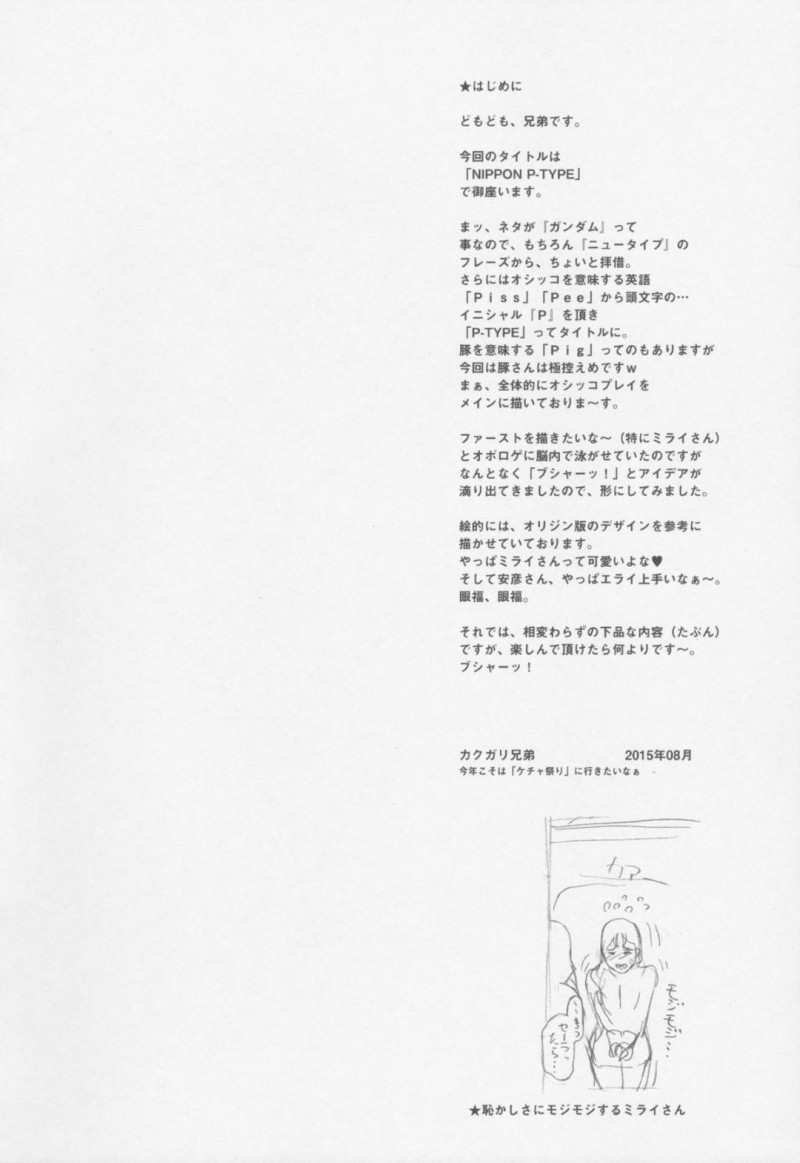 ★はじめに
どもども、兄弟です。
今回のタイトルは
「NIPPON P-TYPE」
で御座います。
まッ、ネタが『ガンダム』って
事なので、もちろん『ニュータイプ』の
フレーズから、ちょいと拝借。
さらにはオシッコを意味する英語
「Piss」「Pee」から頭文字の…
イニシャル『P』を頂き
「P-TYPE」ってタイトルに。
豚を意味する「Pig」ってのもありますが
今回は豚さんは極控えめですw
まぁ、全体的にオシッコプレイを
メインに描いておりま〜す。
ファーストを描きたいな〜（特にミライさん）
とオボロゲに脳内で泳がせていたのですが
なんとなく「ブシャーッ！」とアイデアが
滴り出てきましたので、形にしてみました。
絵的には、オリジン版のデザインを参考に
描かせていております。
やっぱミライさんって可愛いよな♥
そして安彦さん、やっぱエライ上手いなぁ〜。
眼福、眼福。
それでは、相変わらずの下品な内容（たぶん）
ですが、楽しんで頂けたら何よりです〜。
ブシャーッ！
カクガリ兄弟 2015年08月
今年こそは「ケチャ祭り」に行きたいなぁ
カァ
モジモジ…
セーラ
たら…
★恥かしさにモジモジするミライさん